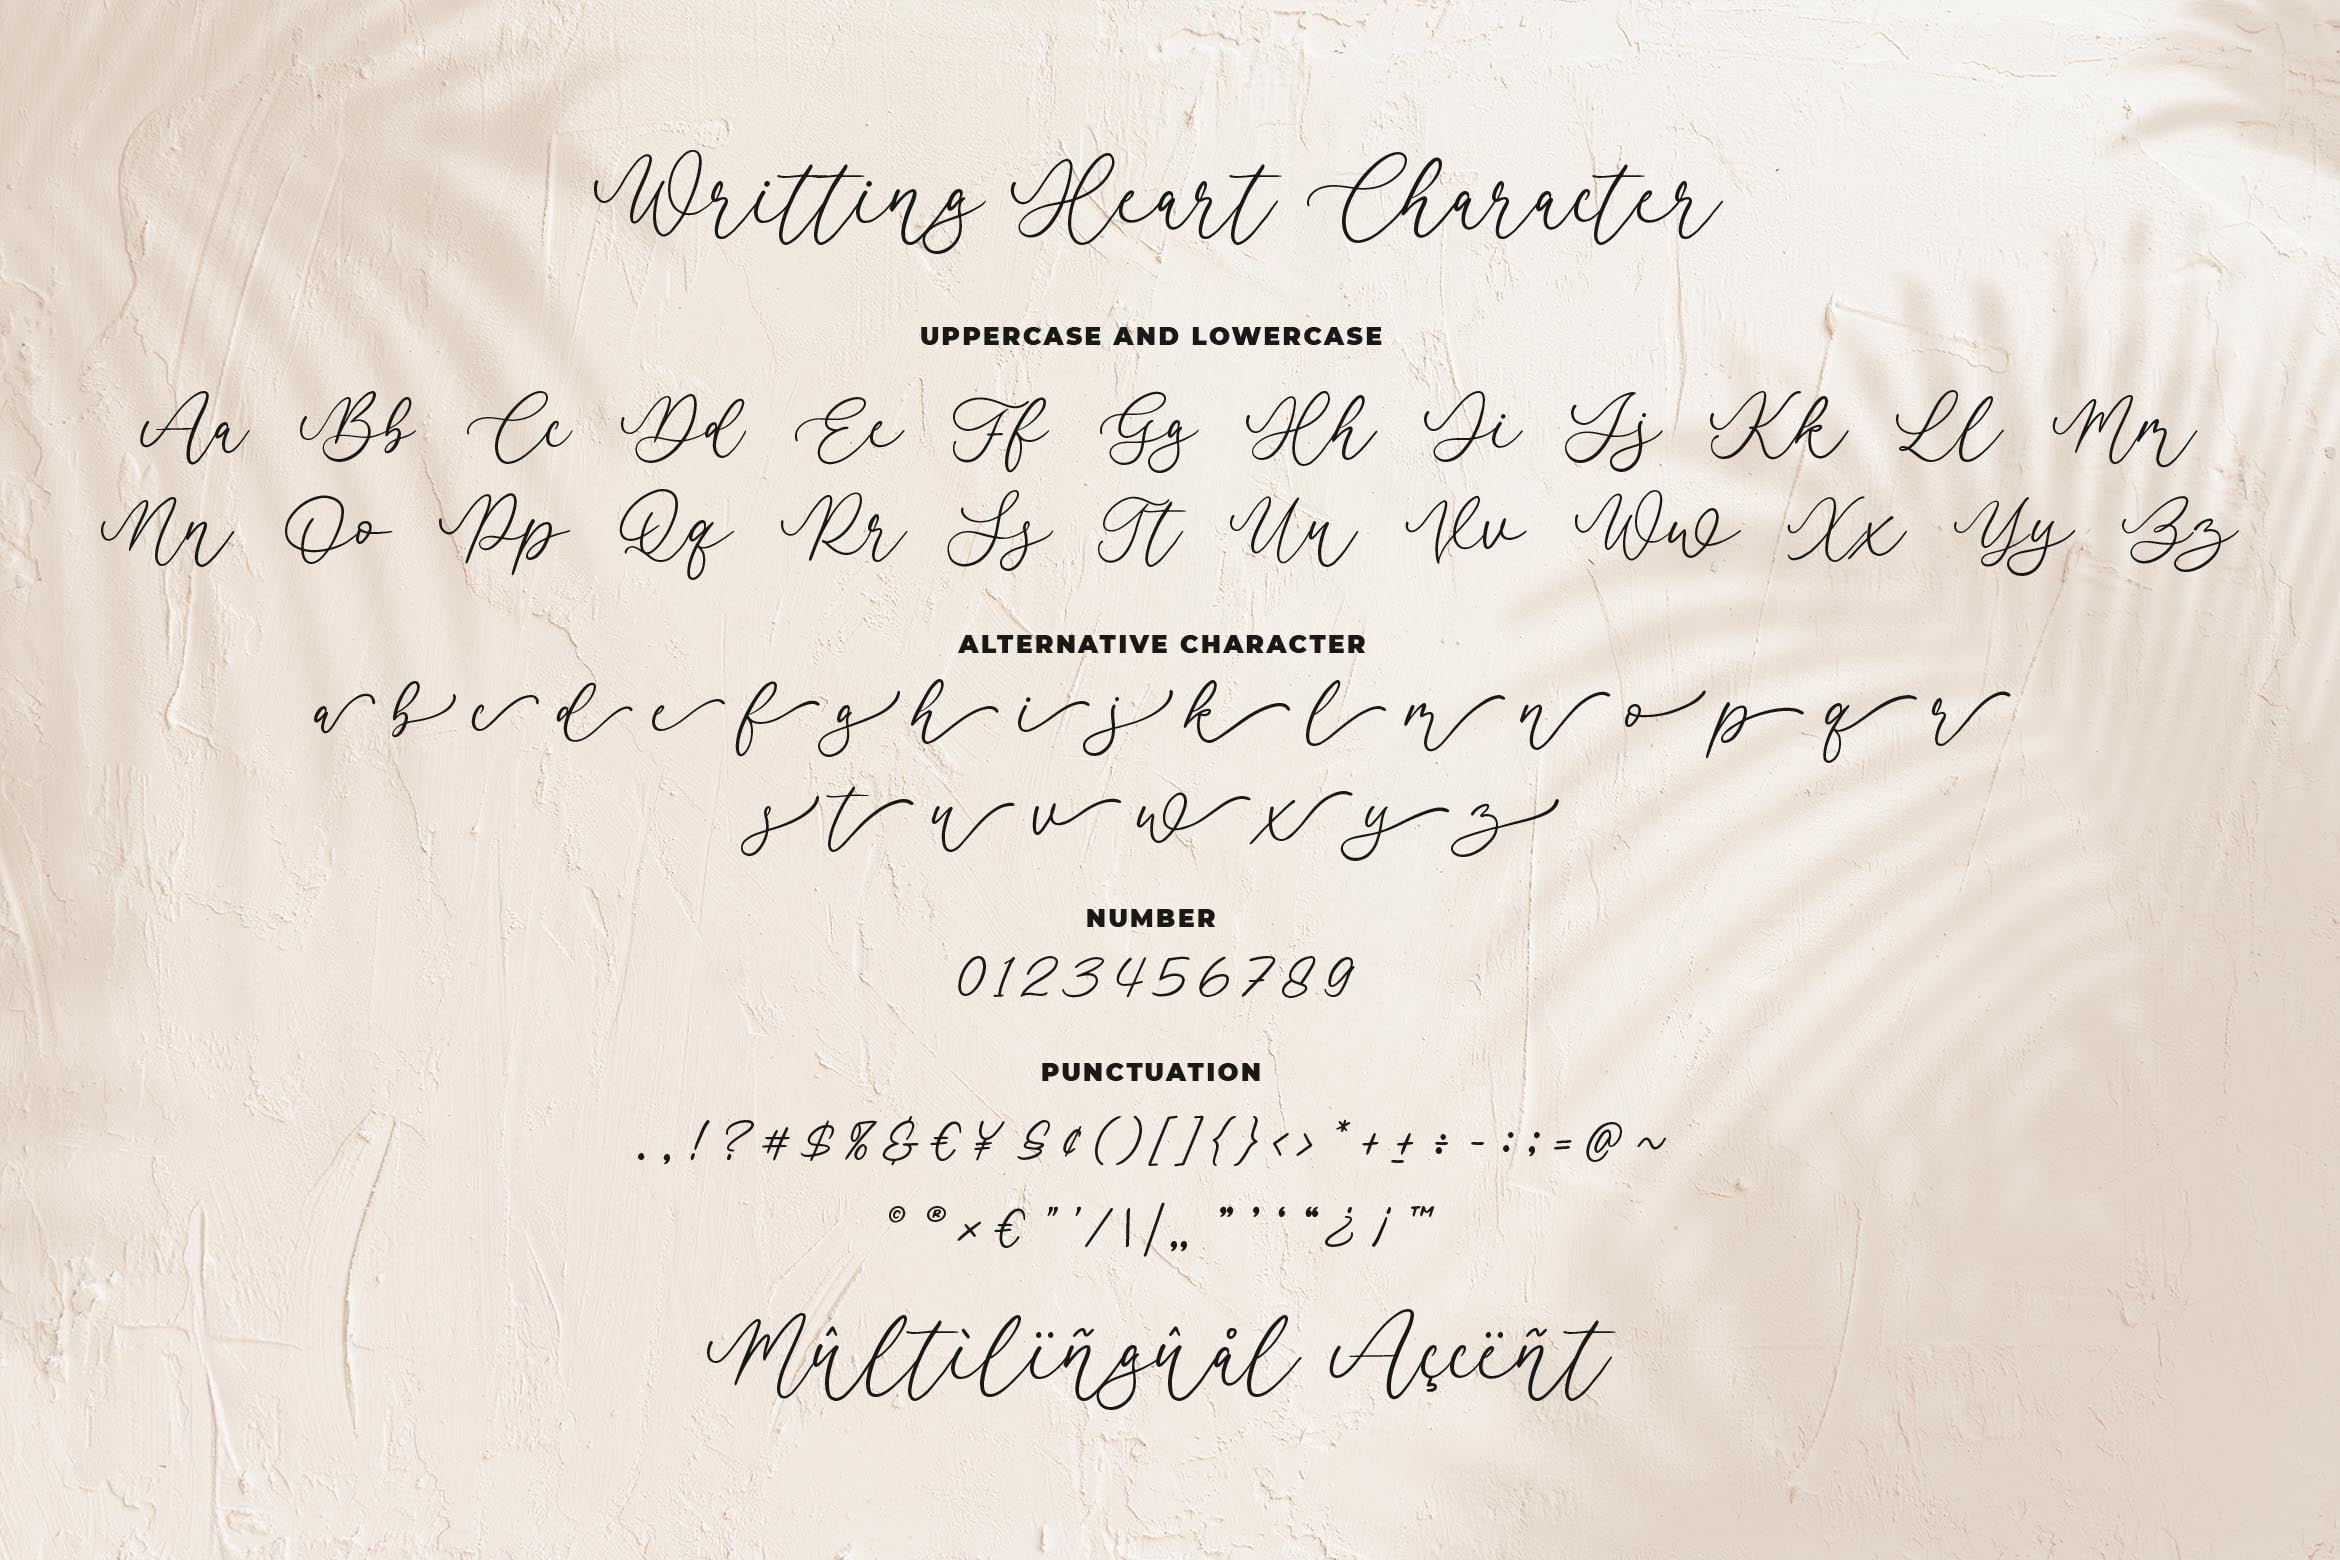 Writting Heart Character
UPPERCASE AND LOWERCASE
Aa Bb Cc Dd Ee Ff Gg Hh Ii Jj Kk Ll Mm
Nn Oo Pp Qq Rr Ss Tt Uu Vv Ww Xx Yy Zz
ALTERNATIVE CHARACTER
a b c d e f g h i j k l m n o p q r
s t u v w x y z
NUMBER
0 1 2 3 4 5 6 7 8 9
PUNCTUATION
. , ! ? # $ % & € ¥ § ¢ ( ) [ ] { } < > * + ± ÷ - : ; = @ ~
© ® × € " ' / \ | „ ” ’ ‘ “ ¿ ¡ ™
Mûltìlïñgûål Açcëñt